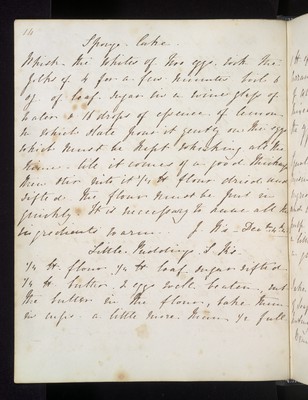 14
Sponge Cake.
Whisk the Whites of two eggs with the
Yolks of 4 for a few minutes boil 6
oz. of loaf sugar in a wine glass of
water & 15 drops of essence of lemon
in which state pour it gently on the eggs
which must be kept whisking all the
time till it comes of a good thickness
then stir into it 1/4 lb flour dried and
sifted the flour must be put in
quickly It is necessary to have all the
ingredients warm.
Little Puddings
1/4 lb. flour 1/4 lb loaf sugar sifted
1/4 lb butter. 2 eggs well beaten, rub
the butter in the flour, bake them
in cups a little more than 1/2 full